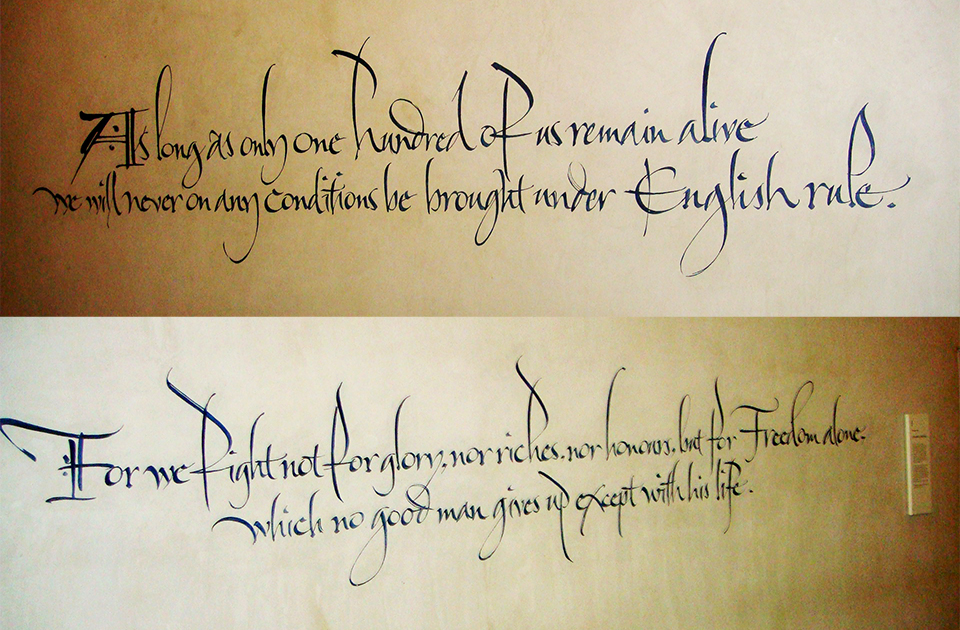 As long as only one hundred of us remain alive
we will never on any conditions be brought under English rule.
For we fight not for glory, nor riches, nor honours, but for Freedom alone.
which no good man gives up except with his life.